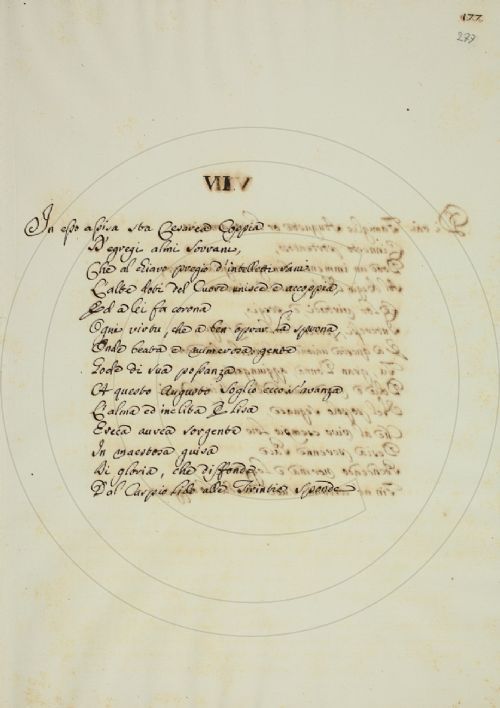 177
277
VII
In esso assisa sta Cesarea Coppia
D'egregi almi Sovrani,
Che al chiaro pregio d'intelletti sani
L'alte doti del Cuore unisce e accoppia,
Ed a lei fa corona
Ogni virtù, che a ben oprar la sprona,
Onde beata e numerosa gente
Gode di sua possanza
A questo Augusto Soglio ecco s'avanza,
L'alma ed inclita Elisa
E reca aurea sorgente
In maestosa guisa
Di gloria, che diffonde
Dal Caspio lido alle Tirintie sponde